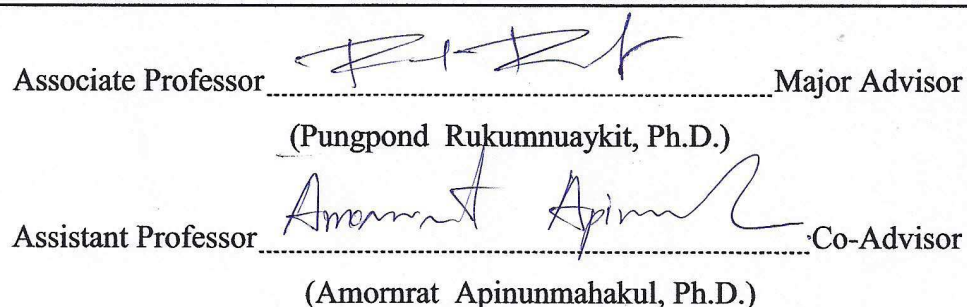 Associate Professor Major Advisor
(Pungpond Rukumnuaykit, Ph.D.)
Amornrat Apinun
Assistant Professor Co-Advisor
(Amornrat Apinunmahakul, Ph.D.)